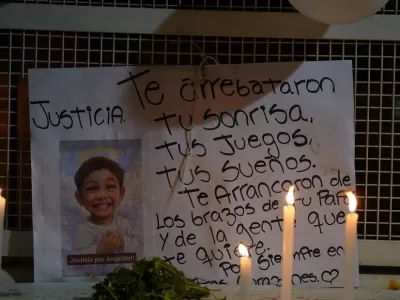 Justicia.
Te arrebataron
tu sonrisa,
tus Juegos,
tus sueños.
Te Arrancaron de
Los brazos de tu Papá
y de la gente que
te quiere.
Por Siempre en
corazones.
Justicia por Angelito!!